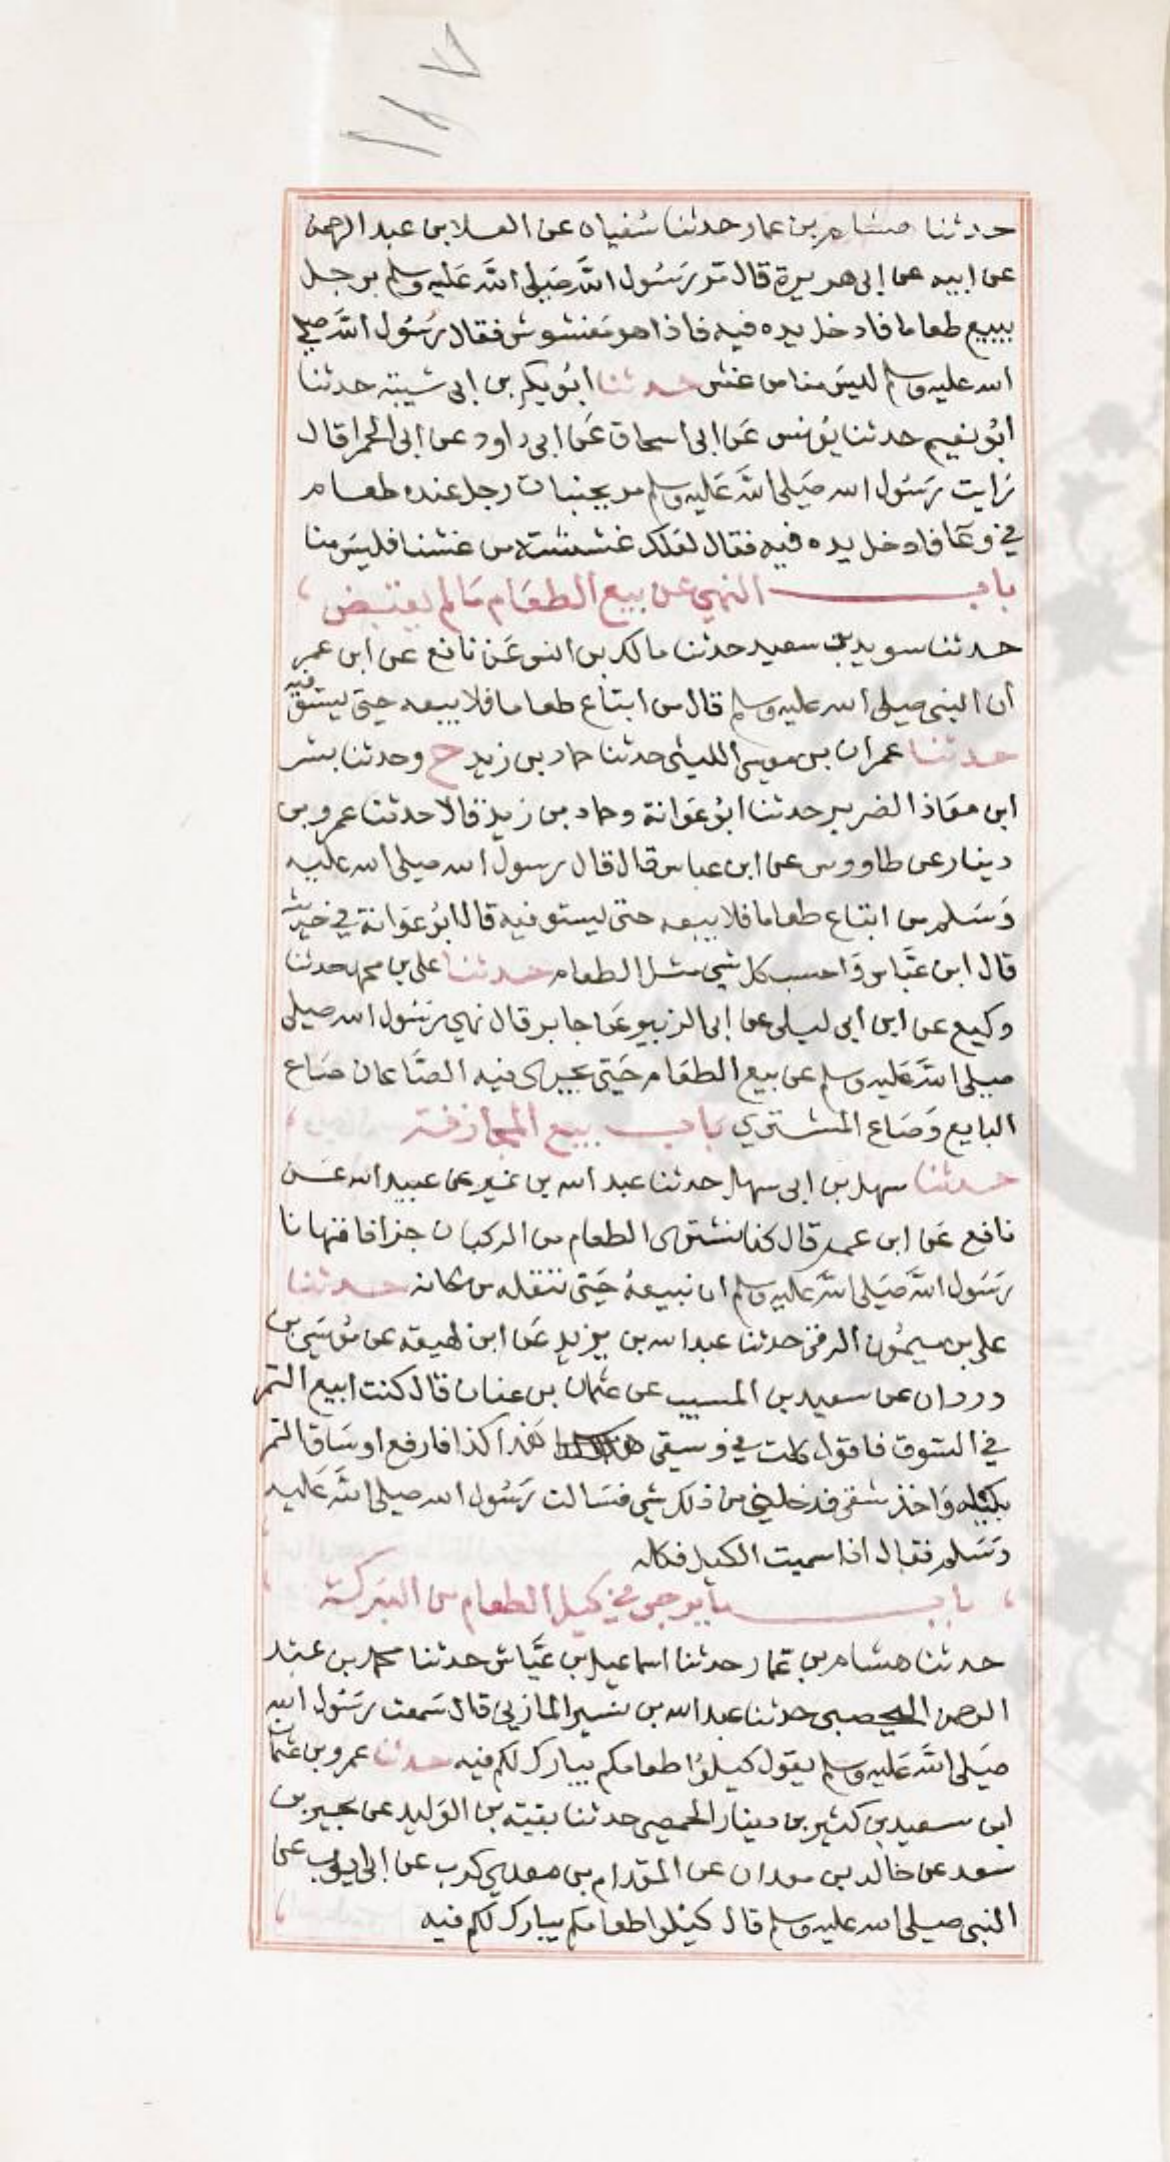 ١١٧
حدثنا هشام بن عمار حدثنا سُفيان عن العلا بن عبد الرحمن
عن ابيه عن ابي هريرة قال مرّ رَسُول الله صَلى الله عَليه وسلم برجل
يبيع طعاما فادخل يده فيه فاذا هو مغشوش فقال رسُول الله صلى
الله عليه وسلم ليسَ منا من غش حدثنا ابُو بكر بن ابي شيبة حدثنا
ابُو نعيم حدثنا يونس عَن ابي اسحاق عَن ابي داود عن ابي الحمرا قال
رَايت رَسُول الله صَلى الله عَليه وسلم مر بجنبات رجل عنده طعام
في وعَا فادخل يده فيه فقال لعَلك غششته من غشنا فليسَ منا
باب النهي عن بيع الطعَام مَا لم يقبض
حدثنا سويد بن سعيد حدثنا مالك بن انس عَن نافع عن ابن عمر
أن النبي صلى الله عليه وسلم قال من ابتاع طعاما فلا يبعه حتى يستوفيه
حدثنا عمران بن موسى الليثي حدثنا حماد بن زيد ح وحدثنا بشر
ابن معَاذ الضرير حدثنا ابُو عَوانة وحماد بن زيد قالا حدثنا عمرو بن
دينار عن طاووس عن ابن عباس قال قال رسول الله صلى الله عليه
وَسَلم من ابتاع طعاما فلا يبعه حتى يستوفيه قال ابُو عَوانة في حديثه
قال ابن عَبَّاس وَاحسب كل شي مثل الطعام حدثنا علي بن محمد حدثنا
وكيع عن ابن ابي ليلى عن ابي الزبير عَن جابر قال نهى رَسُول الله صلى
صلى الله عَليه وسلم عن بيع الطعَام حَتى يجرى فيه الصَّاعان صَاع
البايع وَصَاع المشتري باب بيع المجازفة
حدثنا سهل بن ابي سهل حدثنا عبد الله بن نمير عن عبيد الله عن
نافع عَن ابن عمر قال كنا نشترى الطعام من الركبان جزافا فنهانا
رَسُول الله صَلى الله عَليه وسلم ان نبيعهُ حَتى ننقله من مكانه حدثنا
علي بن ميمُون الرقي حدثنا عبد الله بن يزيد عَن ابن لهيعة عن مُوسَى بن
وردان عن سعيد بن المسيب عن عثمان بن عفان قال كنت ابيع التمر
في السُوق فاقول كلت في وسقي هذا كذا فارفع اوسَاق التمر
بكيله وَاخذ شفي فدخلني من ذلك شي فسَالت رَسُول الله صلى الله عَليه
وَسَلم فقال اذا سميت الكيل فكله
باب ما يرجى في كيل الطعام من البركة
حدثنا هشام بن عمّار حدثنا اسماعيل بن عَيَّاش حدثنا محمد بن عبَد
الرحمن اليحصبي حدثنا عبد الله بن بسر المازني قال سَمعت رَسُول الله
صَلى الله عَليه وسلم يقول كيلوُا طعامكم يبارك لكم فيه حدثنا عمرو بن عثمان
ابن سعيد بن كثير بن دينار الحمصي حدثنا بقية بن الوَليد عن بحير بن
سعد عن خالد بن معدان عن المقدام بن معدي كرب عن ابي ايوب عن
النبي صلى الله عليه وسلم قال كيلوا طعامكم يبارك لكم فيه